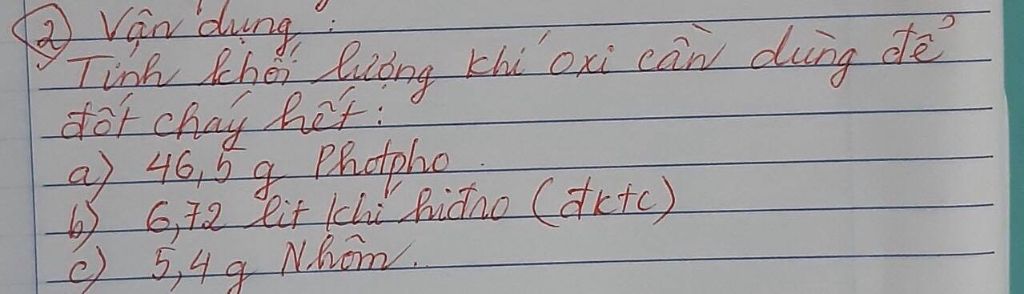 ② Vận dụng :
Tính khối lượng khí oxi cần dùng để
đốt cháy hết :
a) 46,5 g Photpho.
b) 6,72 lít khí hiđro (đktc)
c) 5,4 g Nhôm.